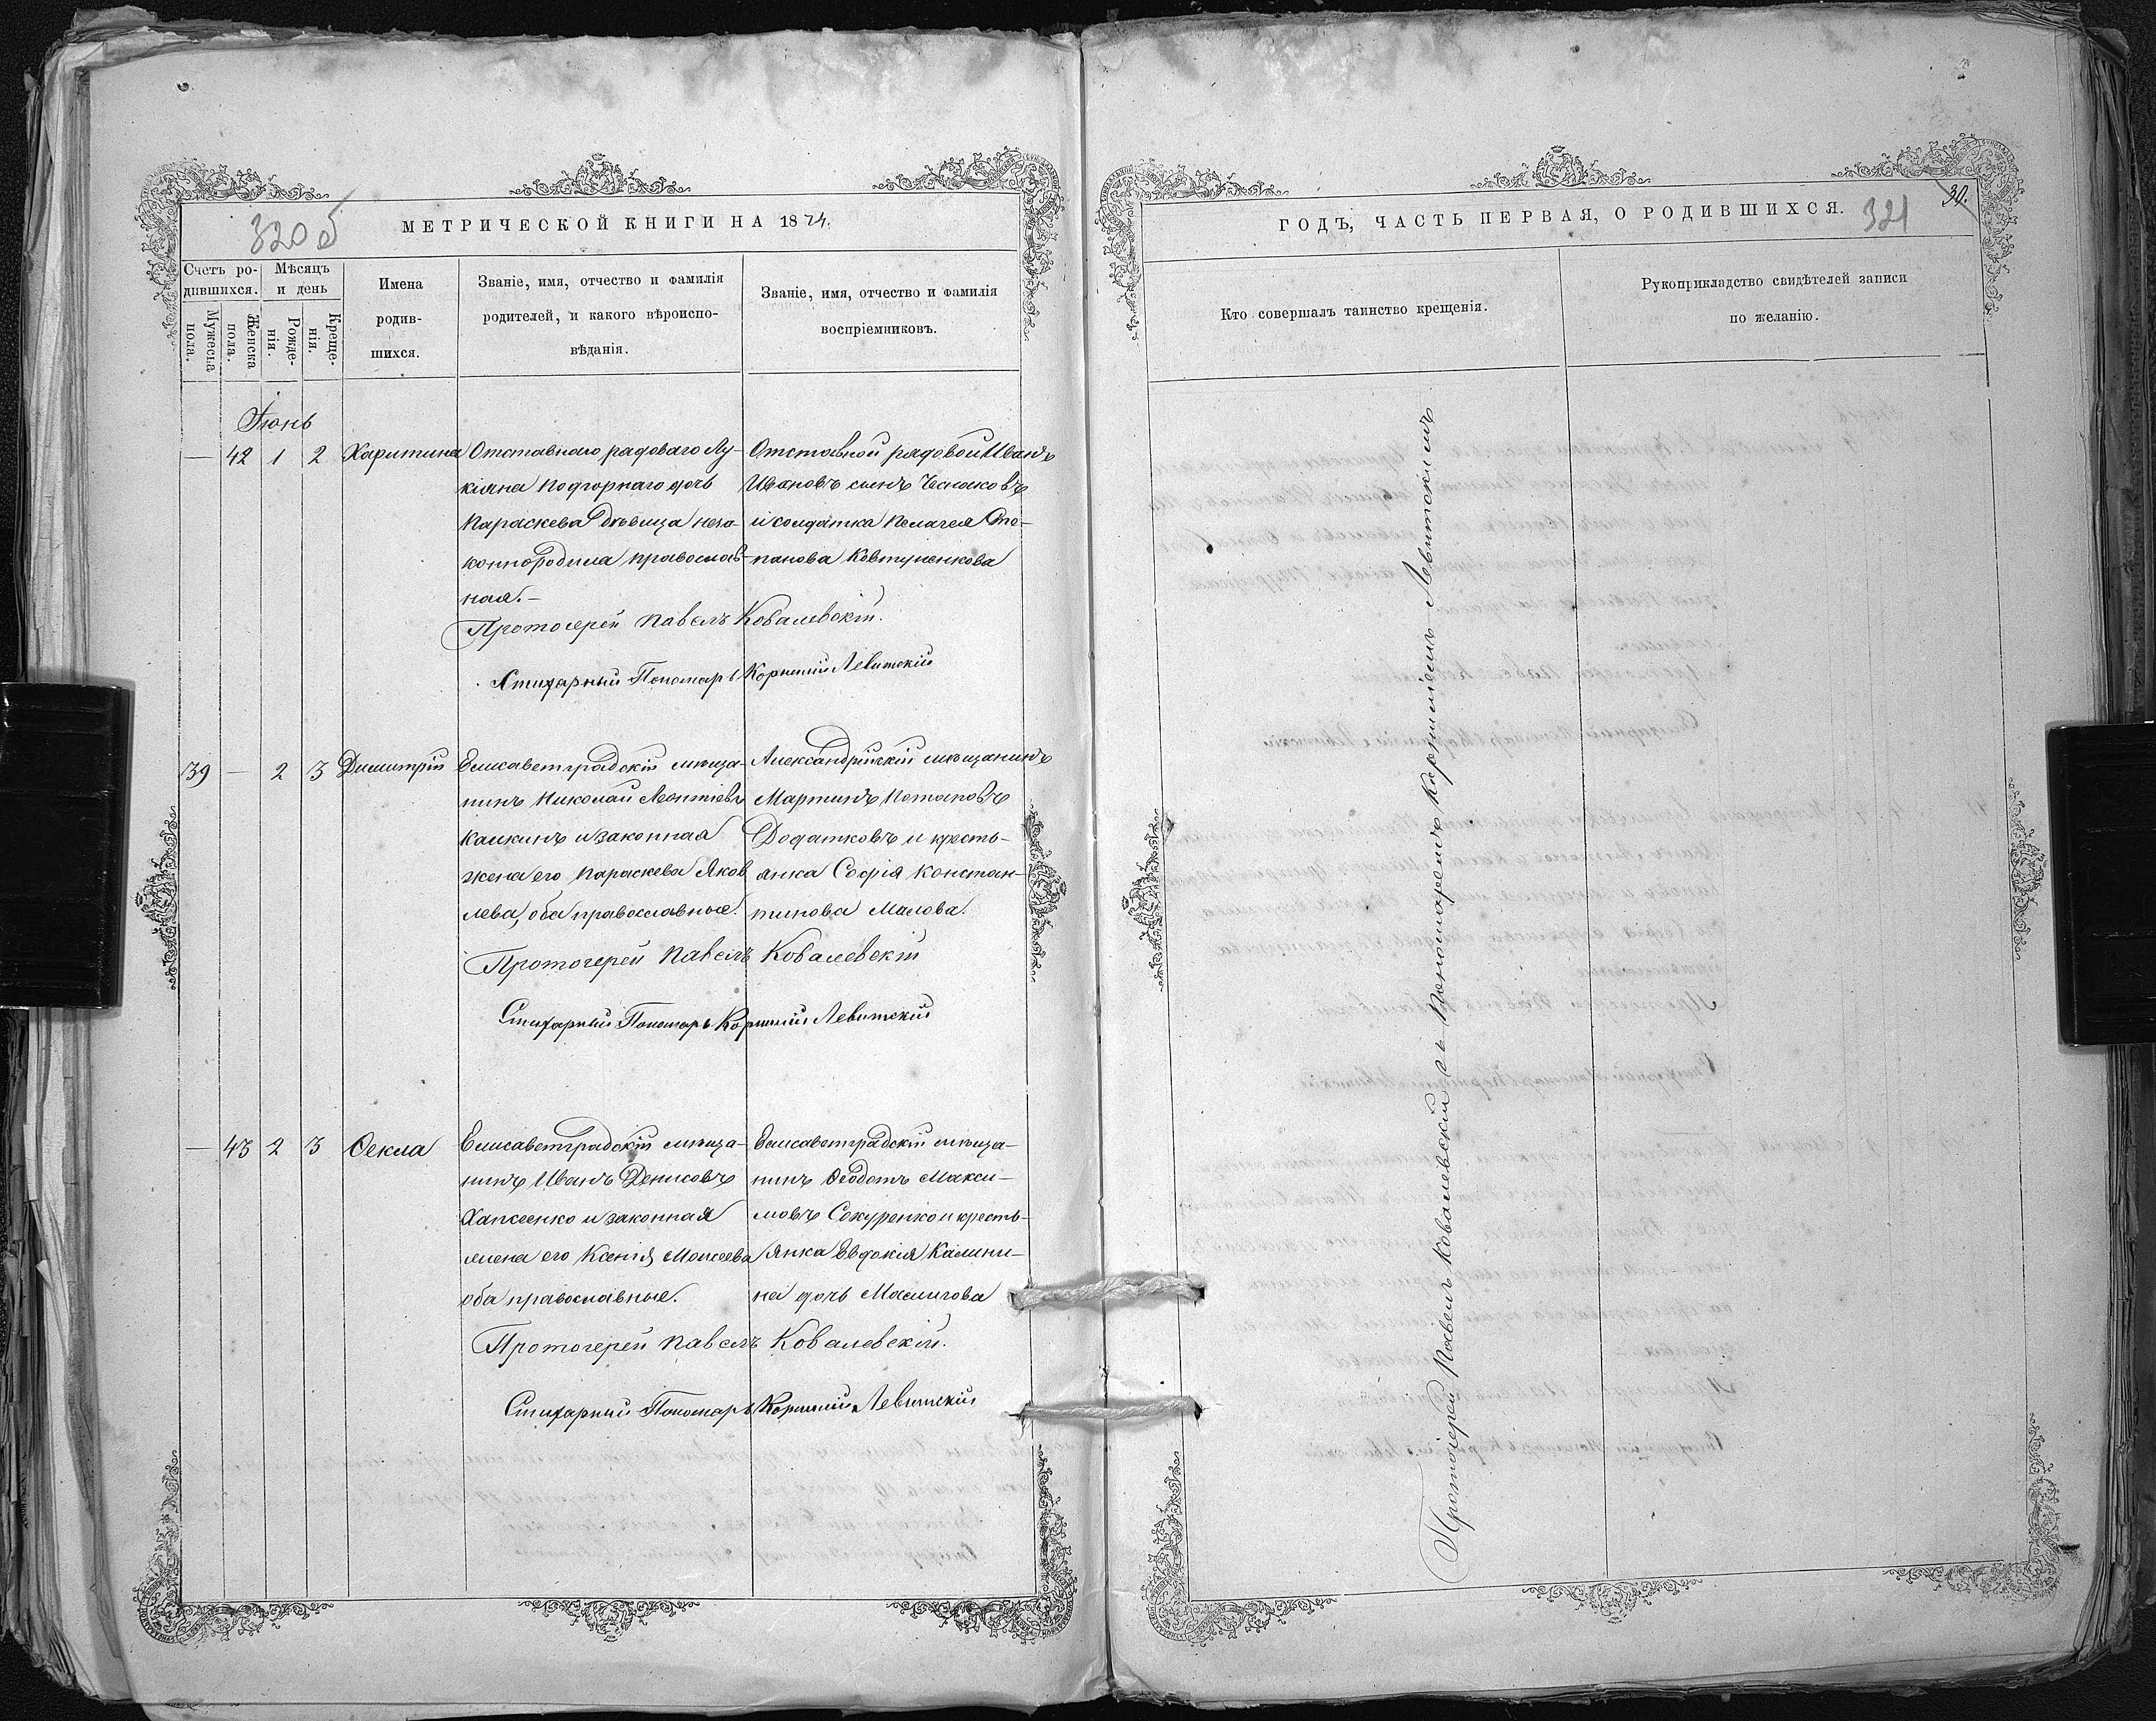 320 об
МЕТРИЧЕСКОЙ КНИГИ НА 1874.
Счетъ ро-
дившихся.
Мѣсяцъ
и день
Мужеска
пола.
Женска
пола.
Рожде-
нія.
Креще-
нія.
Имена
родив-
шихся.
Званіе, имя, отчество и фамилія
родителей, и какого вѣроиспо-
вѣданія.
Званіе, имя, отчество и фамилія
воспріемниковъ.
Іюнь
— 42 1 2 Харитина
Отставнаго рядоваго Лу-
кіяна Подгорнаго дочь
Параскева девица неза-
коннородила православ-
ная.—
Отставной рядовой Иванъ
Ивановъ сынъ Чесноковъ
и солдатка Пелагея Сте-
панова Ковтуненкова
Протоіерей Павелъ Ковалевскій.
Стихарный Пономарь Корнилій Левитскій
39 — 2 3 Димитрій
Елисаветградскій мѣща-
нинъ Николай Леонтіевъ
Калкинъ и законная
жена его Параскева Яков
лева, оба православные.
Александрійскій мѣщанинъ
Мартинъ Потаповъ
Додатковъ и кресть-
янка Софія Констан-
тинова Малова.
Протоіерей Павелъ Ковалевскій
Стихарный Пономарь Корнилій Левитскій
— 43 2 3 Ѳекла
Елисаветградскій мѣща-
нинъ Иванъ Денисовъ
Хапсеенко и законная
жена его Ксенія Моисеева
оба православные.
Елисаветградскій мѣща-
нинъ Ѳеодотъ Макси-
мовъ Сокуренко и кресть-
янка Евдокія Калини-
на дочь Маслигова
Протоіерей Павелъ Ковалевскій.
Стихарный Пономарь Корнилій Левитскій
30.
ГОДЪ, ЧАСТЬ ПЕРВАЯ, О РОДИВШИХСЯ. 321
Кто совершалъ таинство крещенія.
Рукоприкладство свидѣтелей записи
по желанію.
Протоіерей Павелъ Ковалевскій съ Пономаремъ Корниліемъ Левитскимъ